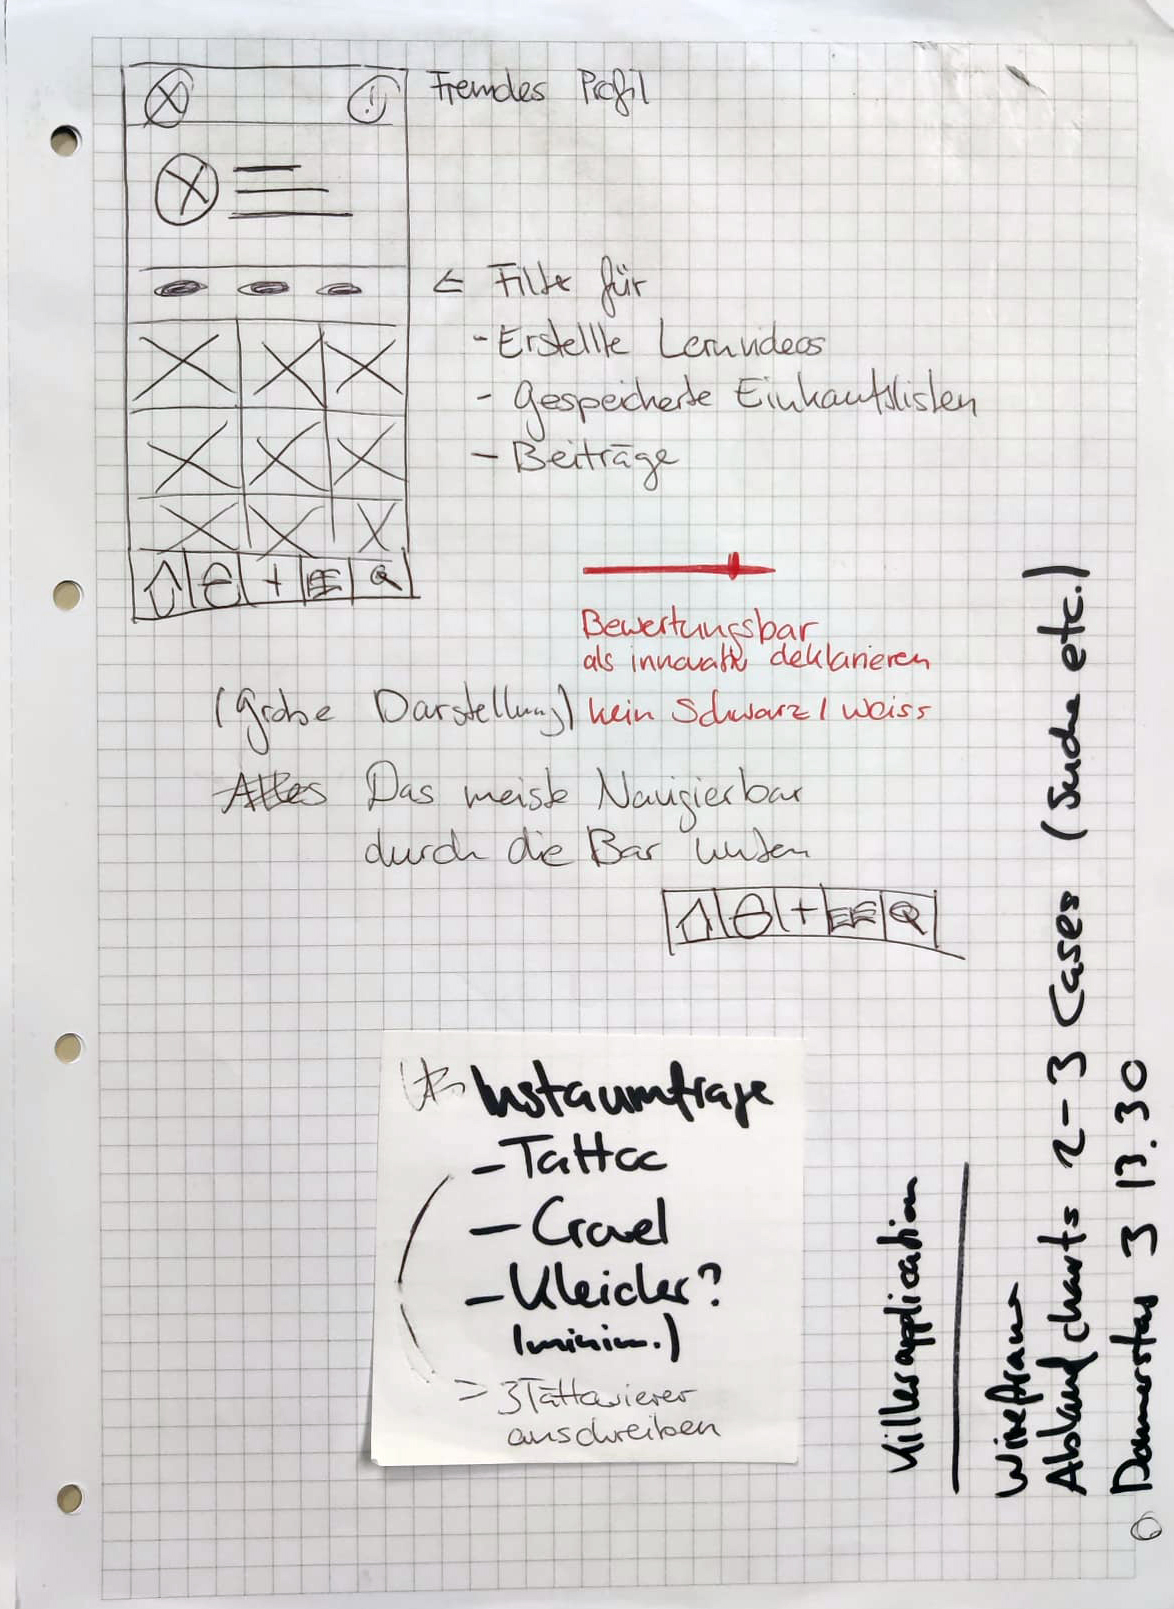 Fremdes Profil
← Filter für
- Erstellte Lernvideos
- gespeicherte Einkaufslisten
- Beiträge
Bewertungsbar
als innovativ deklarieren
kein Schwarz / weiss
(grobe Darstellung)
Alles Das meiste Navigierbar
durch die Bar unten
Instaumfrage
- Tattoo
- Crowd
- Kleider?
(minim.)
=> 3 Tattowierer
anschreiben
Killerapplication
Wireframe
Ablaufcharts 2-3 Cases (Suche etc.)
Donnerstag 3 17.30